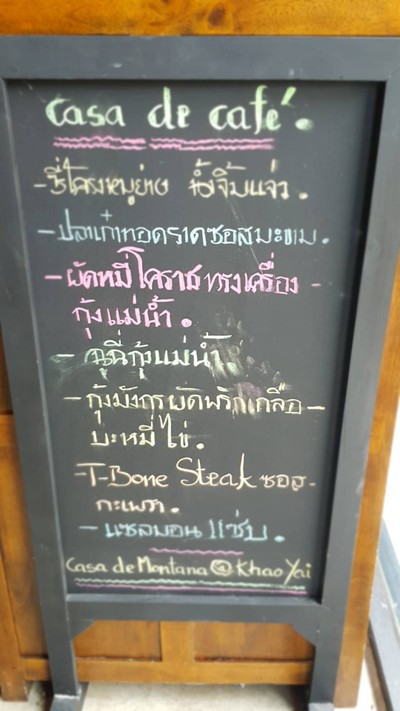 Casa de café.
- ซี่โครงหมูย่าง น้ำจิ้มแจ่ว.
- ปลาเก๋าทอดราดซอสมะขาม.
- ผัดหมี่โคราชทรงเครื่อง -
กุ้งแม่น้ำ.
- ฉู่ฉี่กุ้งแม่น้ำ
- กุ้งมังกรผัดพริกเกลือ -
บะหมี่ไข่.
- T-Bone Steak ซอส -
กะเพรา.
- แซลมอนแซ่บ.
Casa de Montana @ Khao Yai